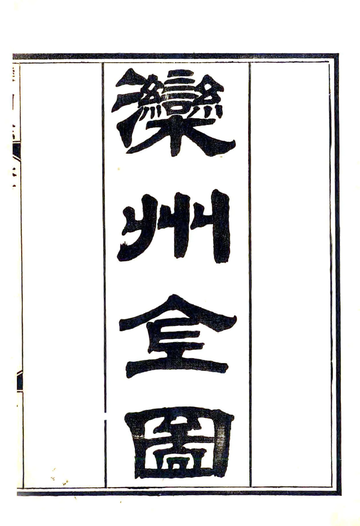 灤州全圖